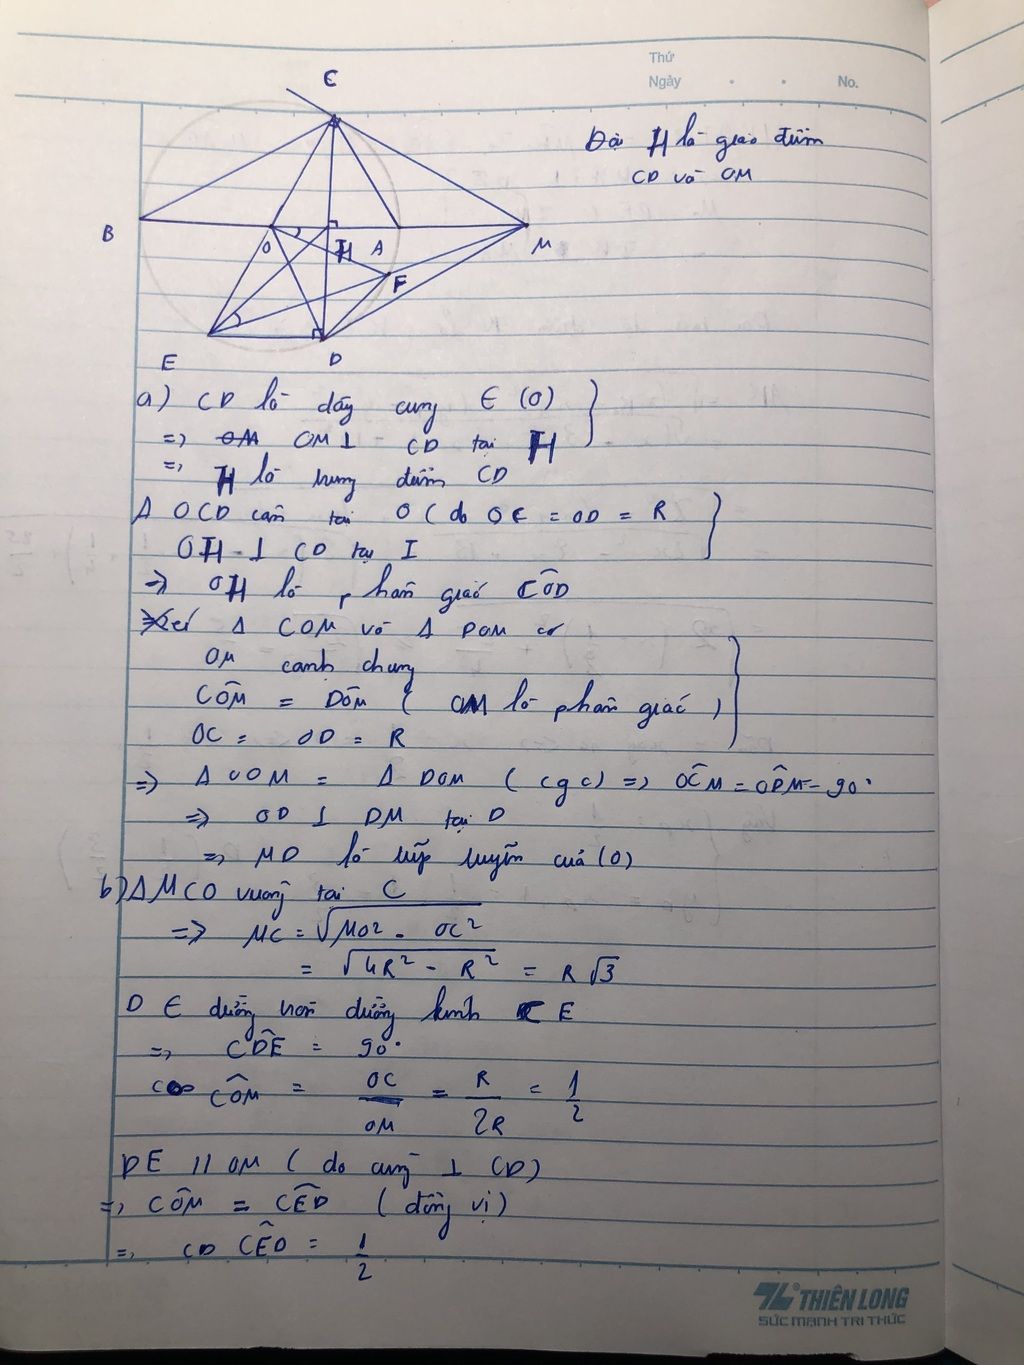 Thứ
Ngày . . No.
C
Đặt H là giao điểm
CD và OM
B O H A M
F
E D
a) CD là dây cung ∈ (O)
=> OM ⊥ CD tại H
=> H là trung điểm CD
Δ OCD cân tại O ( do OC = OD = R
OH ⊥ CD tại I
=> OH là phân giác CÔD
Xét Δ COM và Δ DOM có
OM cạnh chung
CÔM = DÔM ( OM là phân giác )
OC = OD = R
=> Δ COM = Δ DOM ( cgc ) => OĈM = OD̂M = 90°
=> OD ⊥ DM tại D
=> MD là tiếp tuyến của (O)
b) Δ MCO vuông tại C
=> MC = √MO² - OC²
= √4R² - R² = R√3
D ∈ đường tròn đường kính CE
=> CD̂E = 90°
cos CÔM = OC/OM = R/2R = 1/2
DE // OM ( do cùng ⊥ CD)
=> CÔM = CÊD ( đồng vị )
=> CD CÊD = 1/2
THIÊN LONG
SỨC MẠNH TRI THỨC